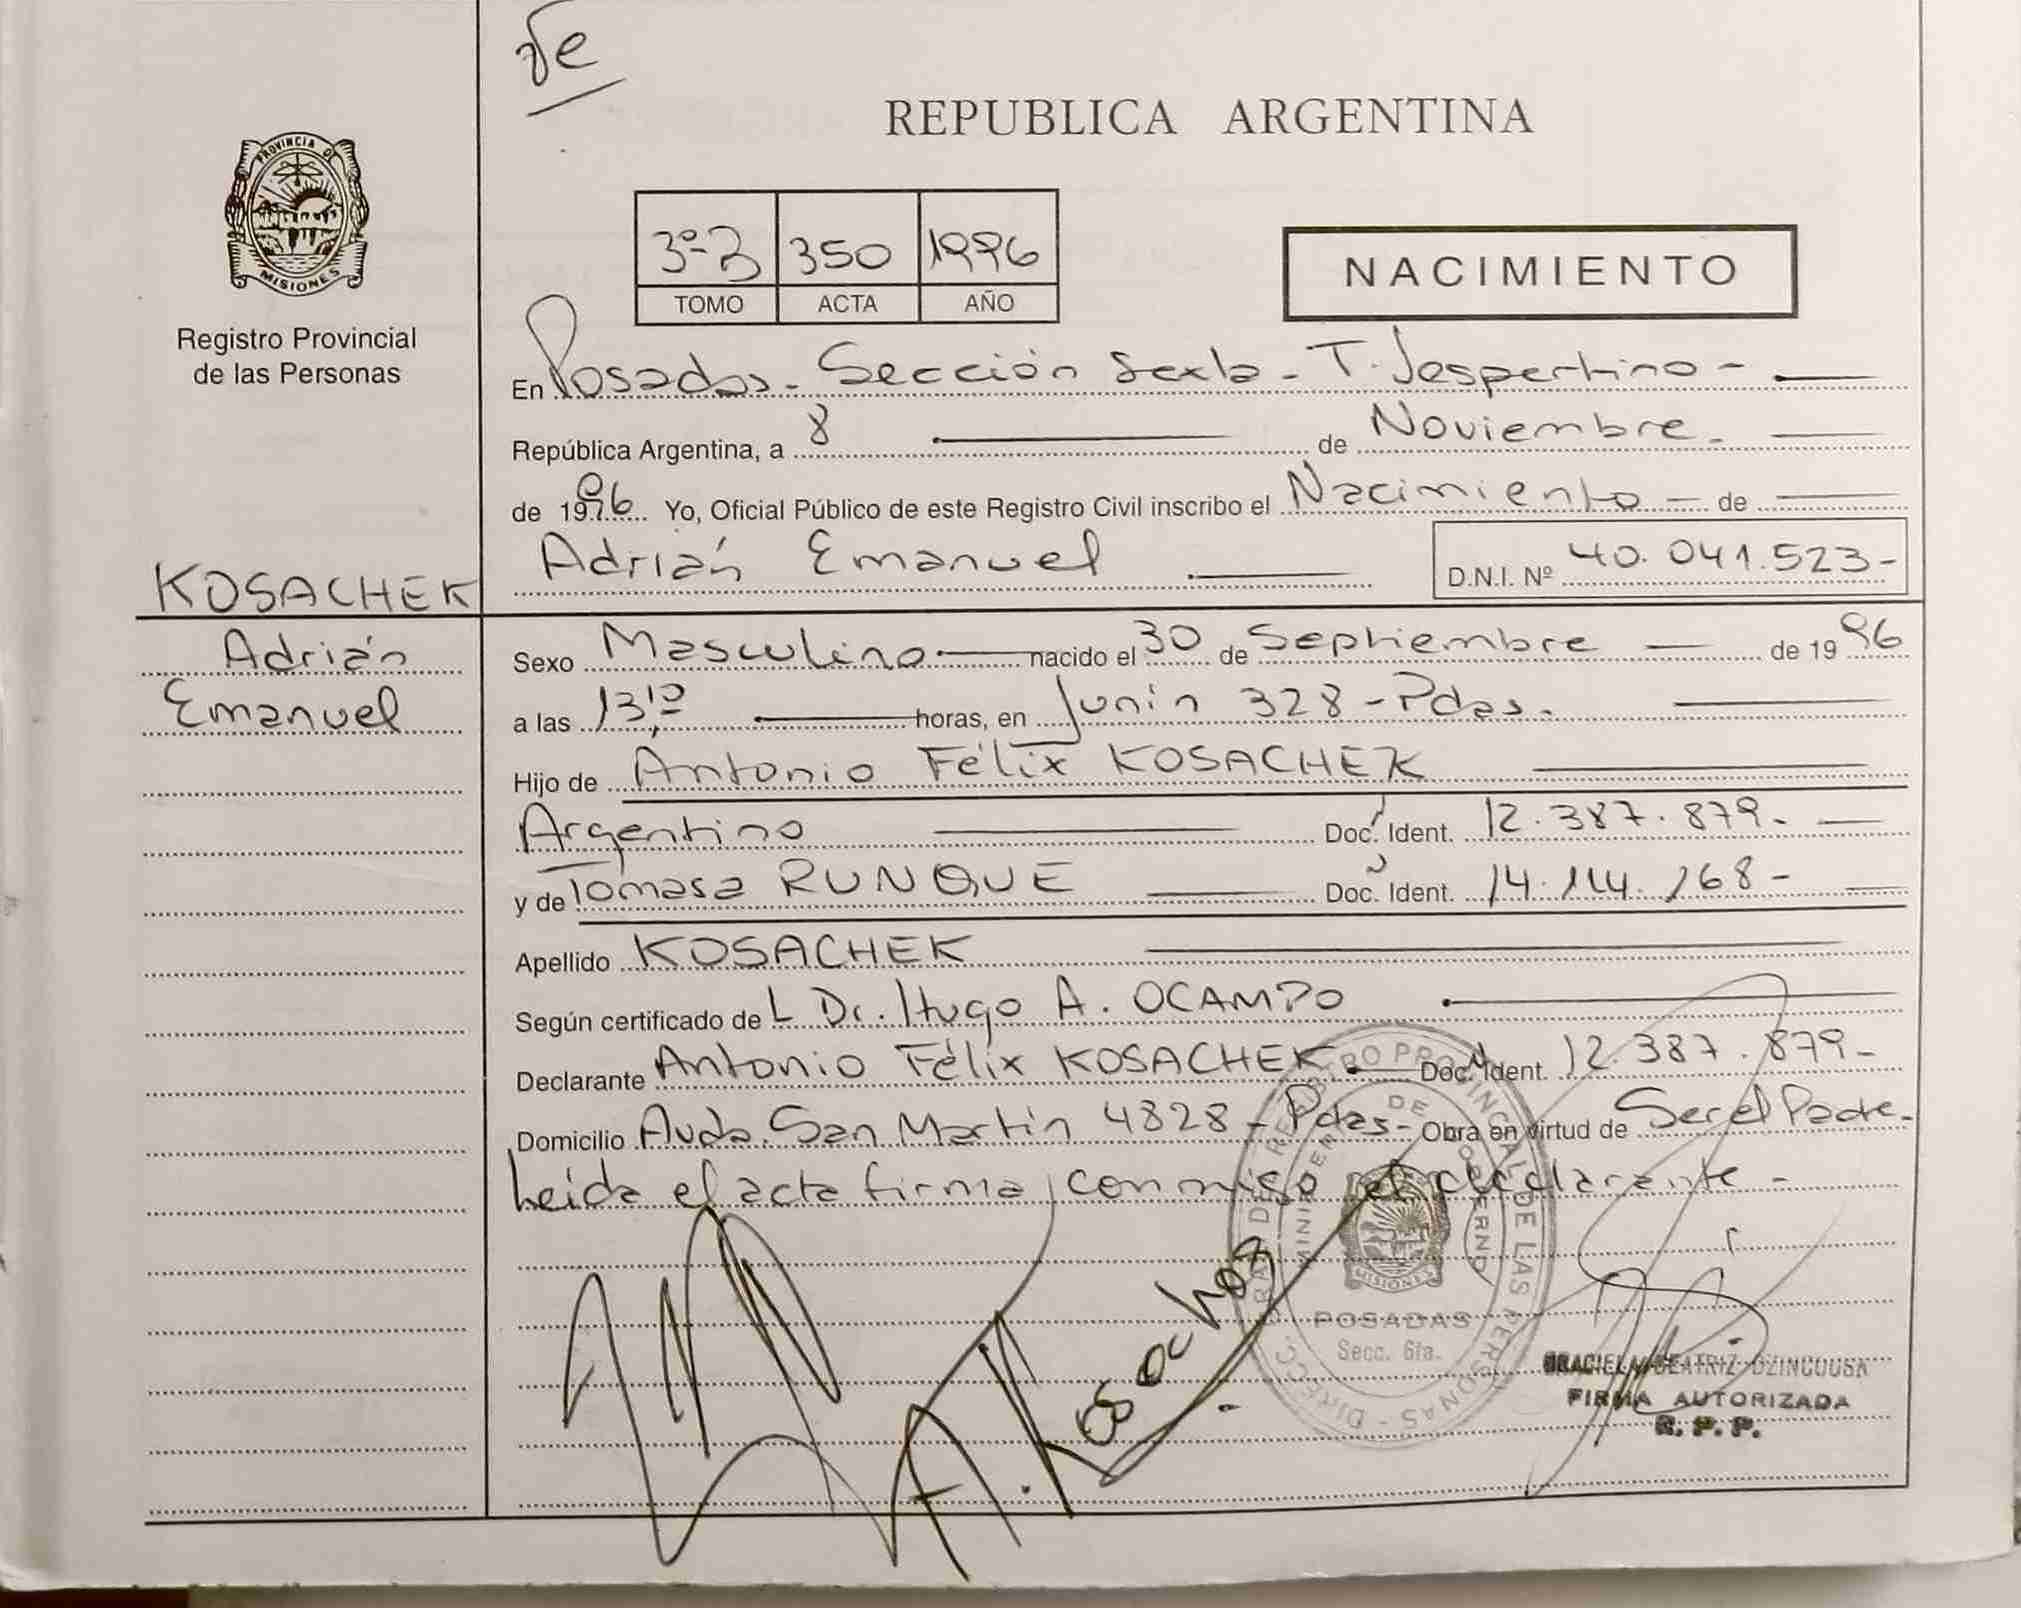 REPUBLICA ARGENTINA
PROVINCIA DE
MISIONES
Registro Provincial
de las Personas
3º 350 1996
TOMO ACTA AÑO
NACIMIENTO
En Posadas - Sección Sexta - T. Vespertino -
República Argentina, a 8 de Noviembre -
de 1996 Yo, Oficial Público de este Registro Civil inscribo el Nacimiento - de
Adrián Emanuel D.N.I. Nº 40.041.523-
KOSACHEK
Adrián
Emanuel
Sexo Masculino nacido el 30 de Septiembre de 1996
a las 13,10 horas, en Junín 328 - Pdas.
Hijo de Antonio Félix KOSACHEK
Argentino Doc. Ident. 12.387.879-
y de Tomasa RUNQUE Doc. Ident. 14.114.168-
Apellido KOSACHEK
Según certificado del Dr. Hugo A. OCAMPO
Declarante Antonio Félix KOSACHEK Doc. Ident. 12.387.879-
Domicilio Avda. San Martín 4828 - Pdas - Obra en virtud de Ser el Padre -
Leida el acta firma conmigo el declarante -
DIRECC. GRAL DE REGISTRO PROVINCIAL DE LAS PERSONAS
MINISTERIO DE GOBIERNO
MISIONES
POSADAS
Secc. 6ta.
A. Kosachek
GRACIELA BEATRIZ
FIRMA AUTORIZADA
R. P. P.